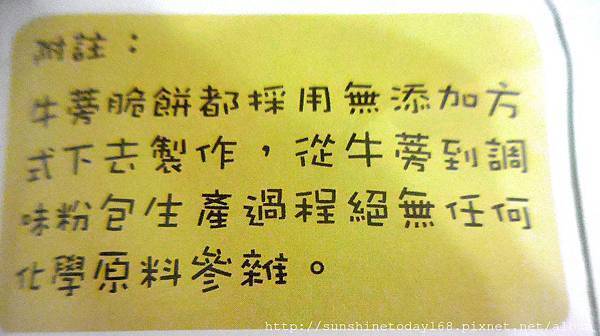 附註：
牛蒡脆餅都採用無添加方
式下去製作，從牛蒡到調
味粉包生產過程絕無任何
化學原料參雜。
http://sunshinetoday168.pixnet.net/album